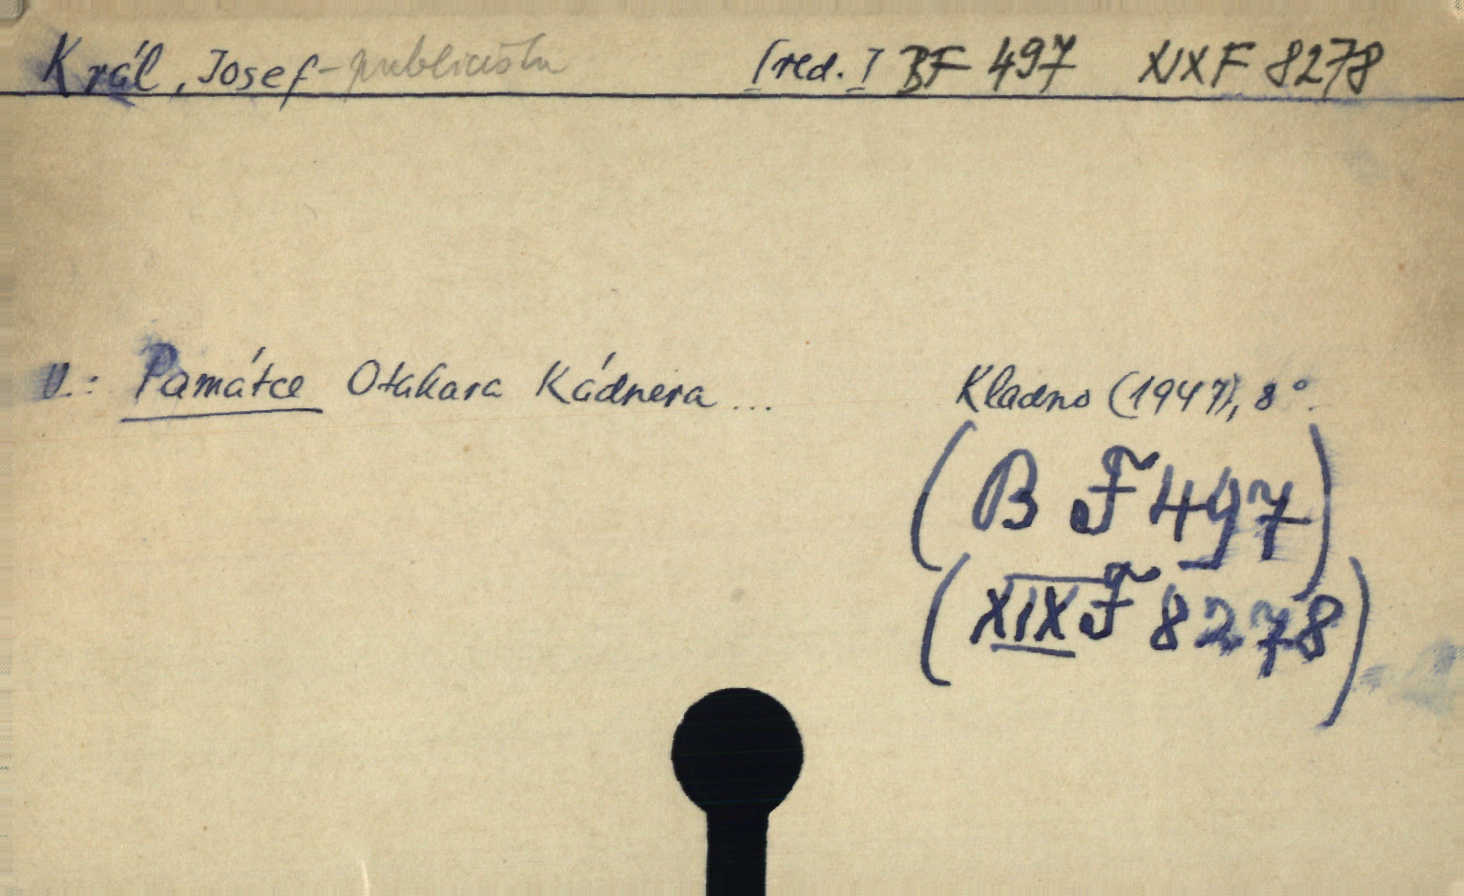 Král, Josef - publicista [red.] BF 497 XIX F 8278
v.: Památce Otakara Kádnera ... Kladno (1947), 8°.
(B F 497)
(XIX F 8278)